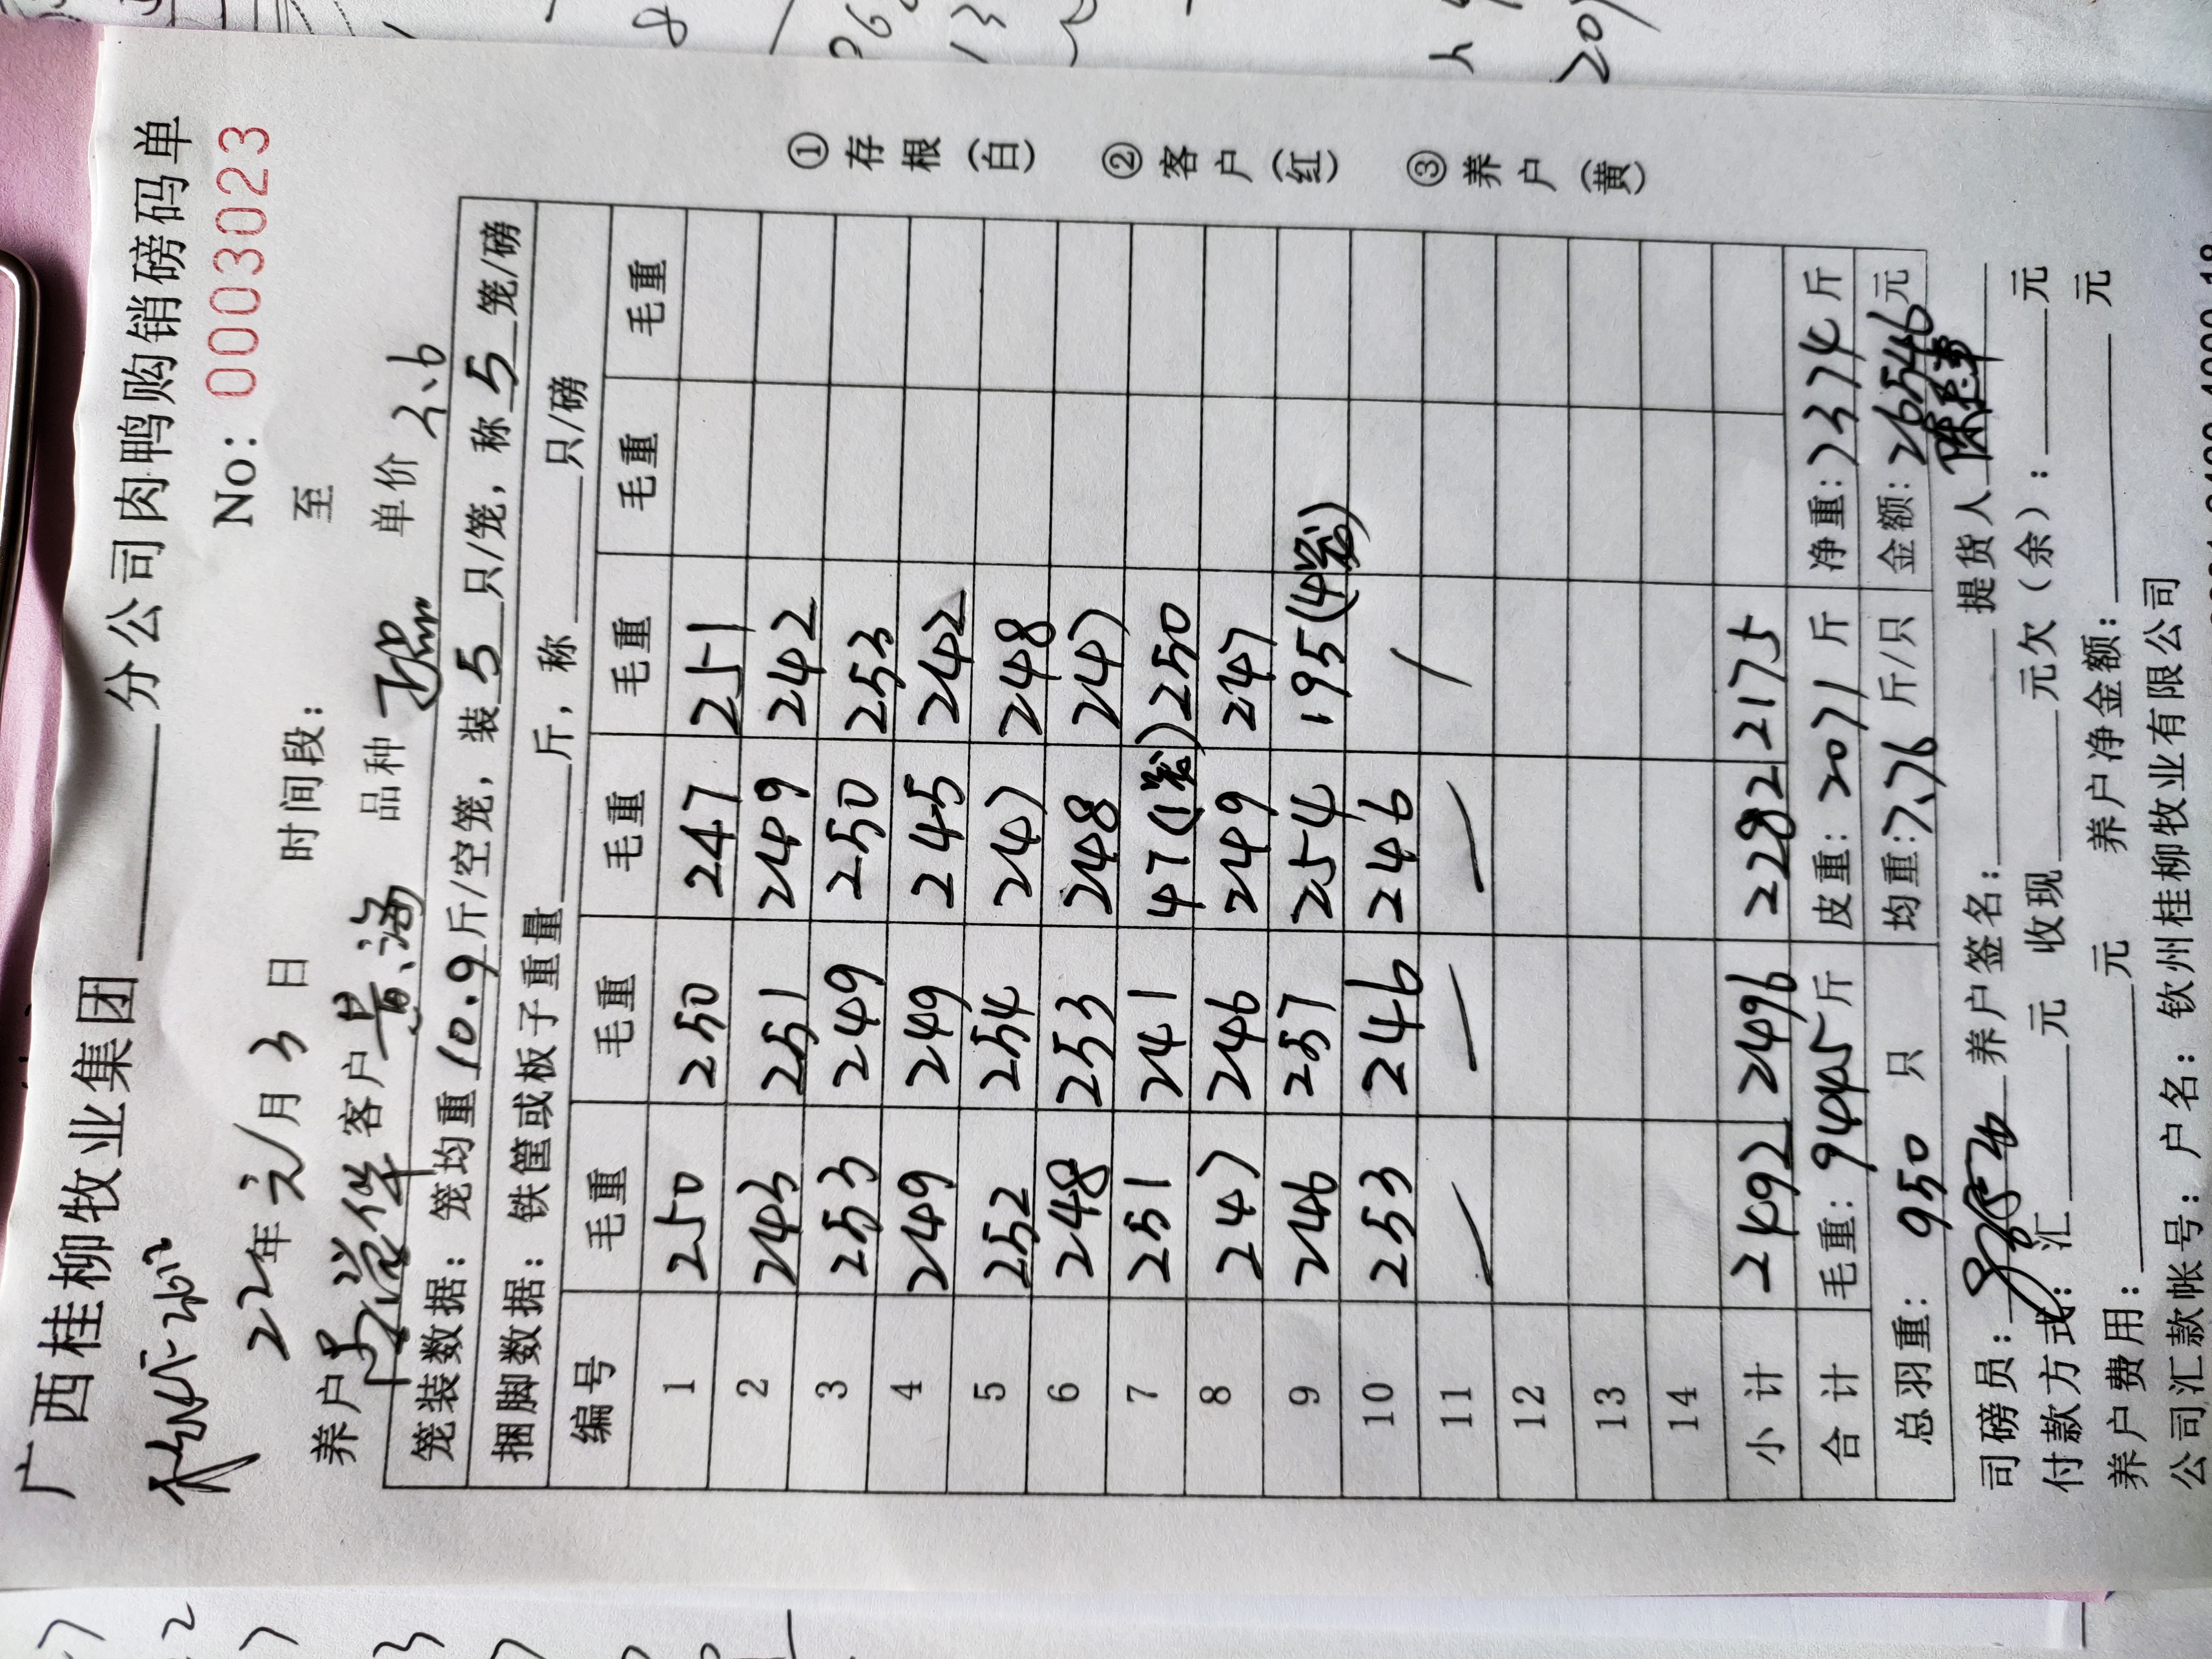 广西桂柳牧业集团________分公司肉鸭购销磅码单
No: 0003023
22年元/月3日 时间段: 至
养户 客户 黄海 品种 单价 3.6
笼装数据: 笼均重10.9斤/空笼, 装5只/笼, 称5笼/磅
捆脚数据: 铁筐或板子重量____斤, 称____只/磅
编号 毛重 毛重 毛重 毛重 毛重 毛重
1 250 250 247 251
2 243 251 249 242
3 253 249 250 253
4 249 249 245 242
5 252 254 247 248
6 248 253 248 247
7 251 241 47(1笼) 250
8 247 246 249 247
9 246 257 254 195(4笼)
10 253 246 246 /
11 — — —
12
13
14
小计 2492 2496 2282 2175
合计 毛重: 9445斤 皮重: 2071斤 净重: 7374斤
总羽重: 950只 均重: 7.76斤/只 金额: 26546元
① 存根(白) ② 客户(红) ③ 养户(黄)
司磅员: 养户签名: 提货人
付款方式: 汇____元 收现____元欠(余): ____元
养户费用: ____元 养户净金额: ____元
公司汇款帐号: 户名: 钦州桂柳牧业有限公司